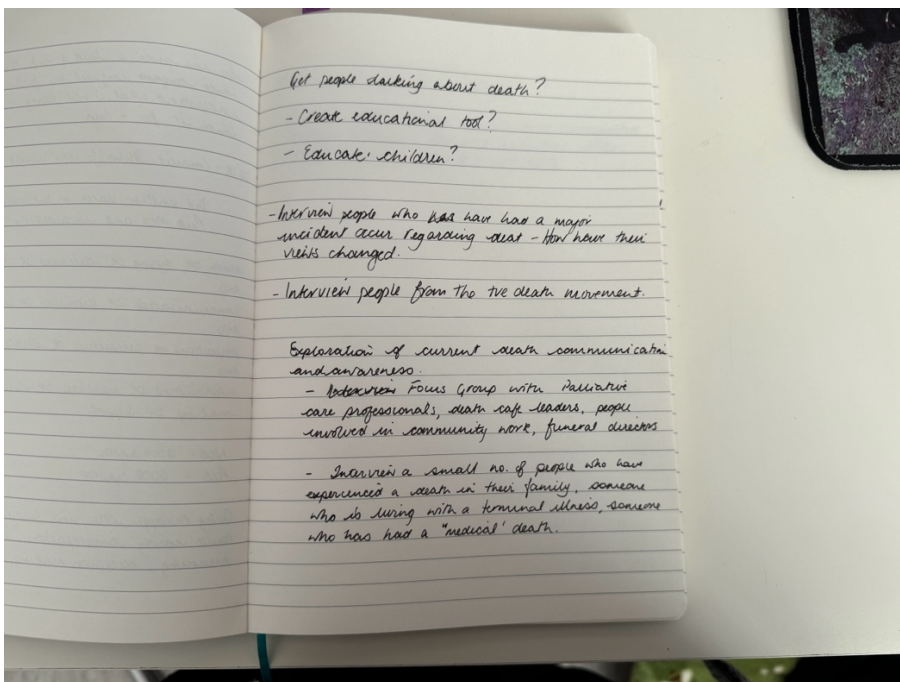 Get people talking about death?
- Create educational tool?
- Educate children?
- Interview people who has have had a major
incident occur regarding deat - How have their
views changed.
- Interview people from the +ve death movement.
Exploration of current death communication
and awareness.
- Interview Focus Group with Palliative
care professionals, death cafe leaders, people
involved in community work, funeral directors
- Interview a small no. of people who have
experienced a death in their family, someone
who is living with a terminal illness, someone
who has had a "medical' death.